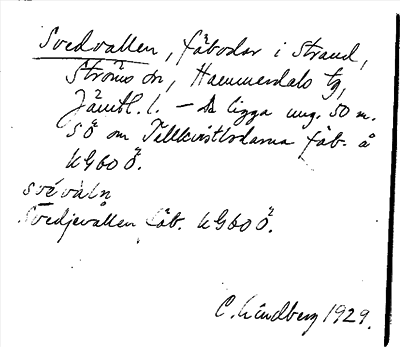 Svedvallen, fäbodar i Strand,
Ströms sn, Hammerdals tg,
Jämtl. l. – De ligga ung. 50 m.
SÖ om Tellkvistbodarna fäb. å
KG60Ö.
svèvàln
Svedjevallen fäb. KG60Ö.
C. Lindberg 1929.